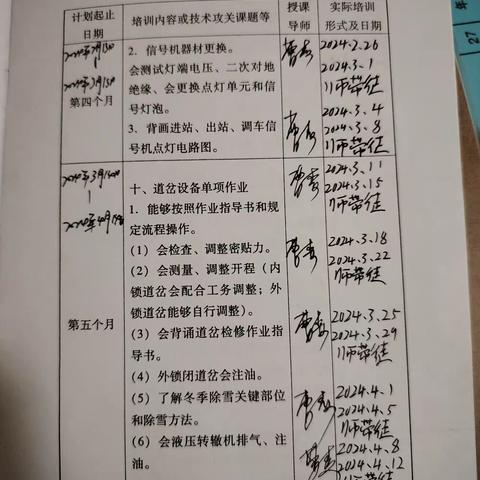 计划起止
日期
培训内容或技术攻关课题等
授课
导师
实际培训
形式及日期
第四个月
2．信号机器材更换。
会测试灯端电压、二次对地
绝缘、会更换点灯单元和信
号灯泡。
3．背画进站、出站、调车信
号机点灯电路图。
2024.2.26
2024.3.1
师带徒
2024.3.4
2024.3.8
师带徒
第五个月
十、道岔设备单项作业
1．能够按照作业指导书和规
定流程操作。
（1）会检查、调整密贴力。
（2）会测量、调整开程（内
锁道岔会配合工务调整；外
锁道岔能够自行调整）。
（3）会背诵道岔检修作业指
导书。
（4）外锁闭道岔会注油。
（5）了解冬季除雪关键部位
和除雪方法。
（6）会液压转辙机排气、注
油。
2024.3.11
2024.3.15
师带徒
2024.3.18
2024.3.22
师带徒
2024.3.25
2024.3.29
师带徒
2024.4.1
2024.4.5
师带徒
2024.4.8
2024.4.12
师带徒
27